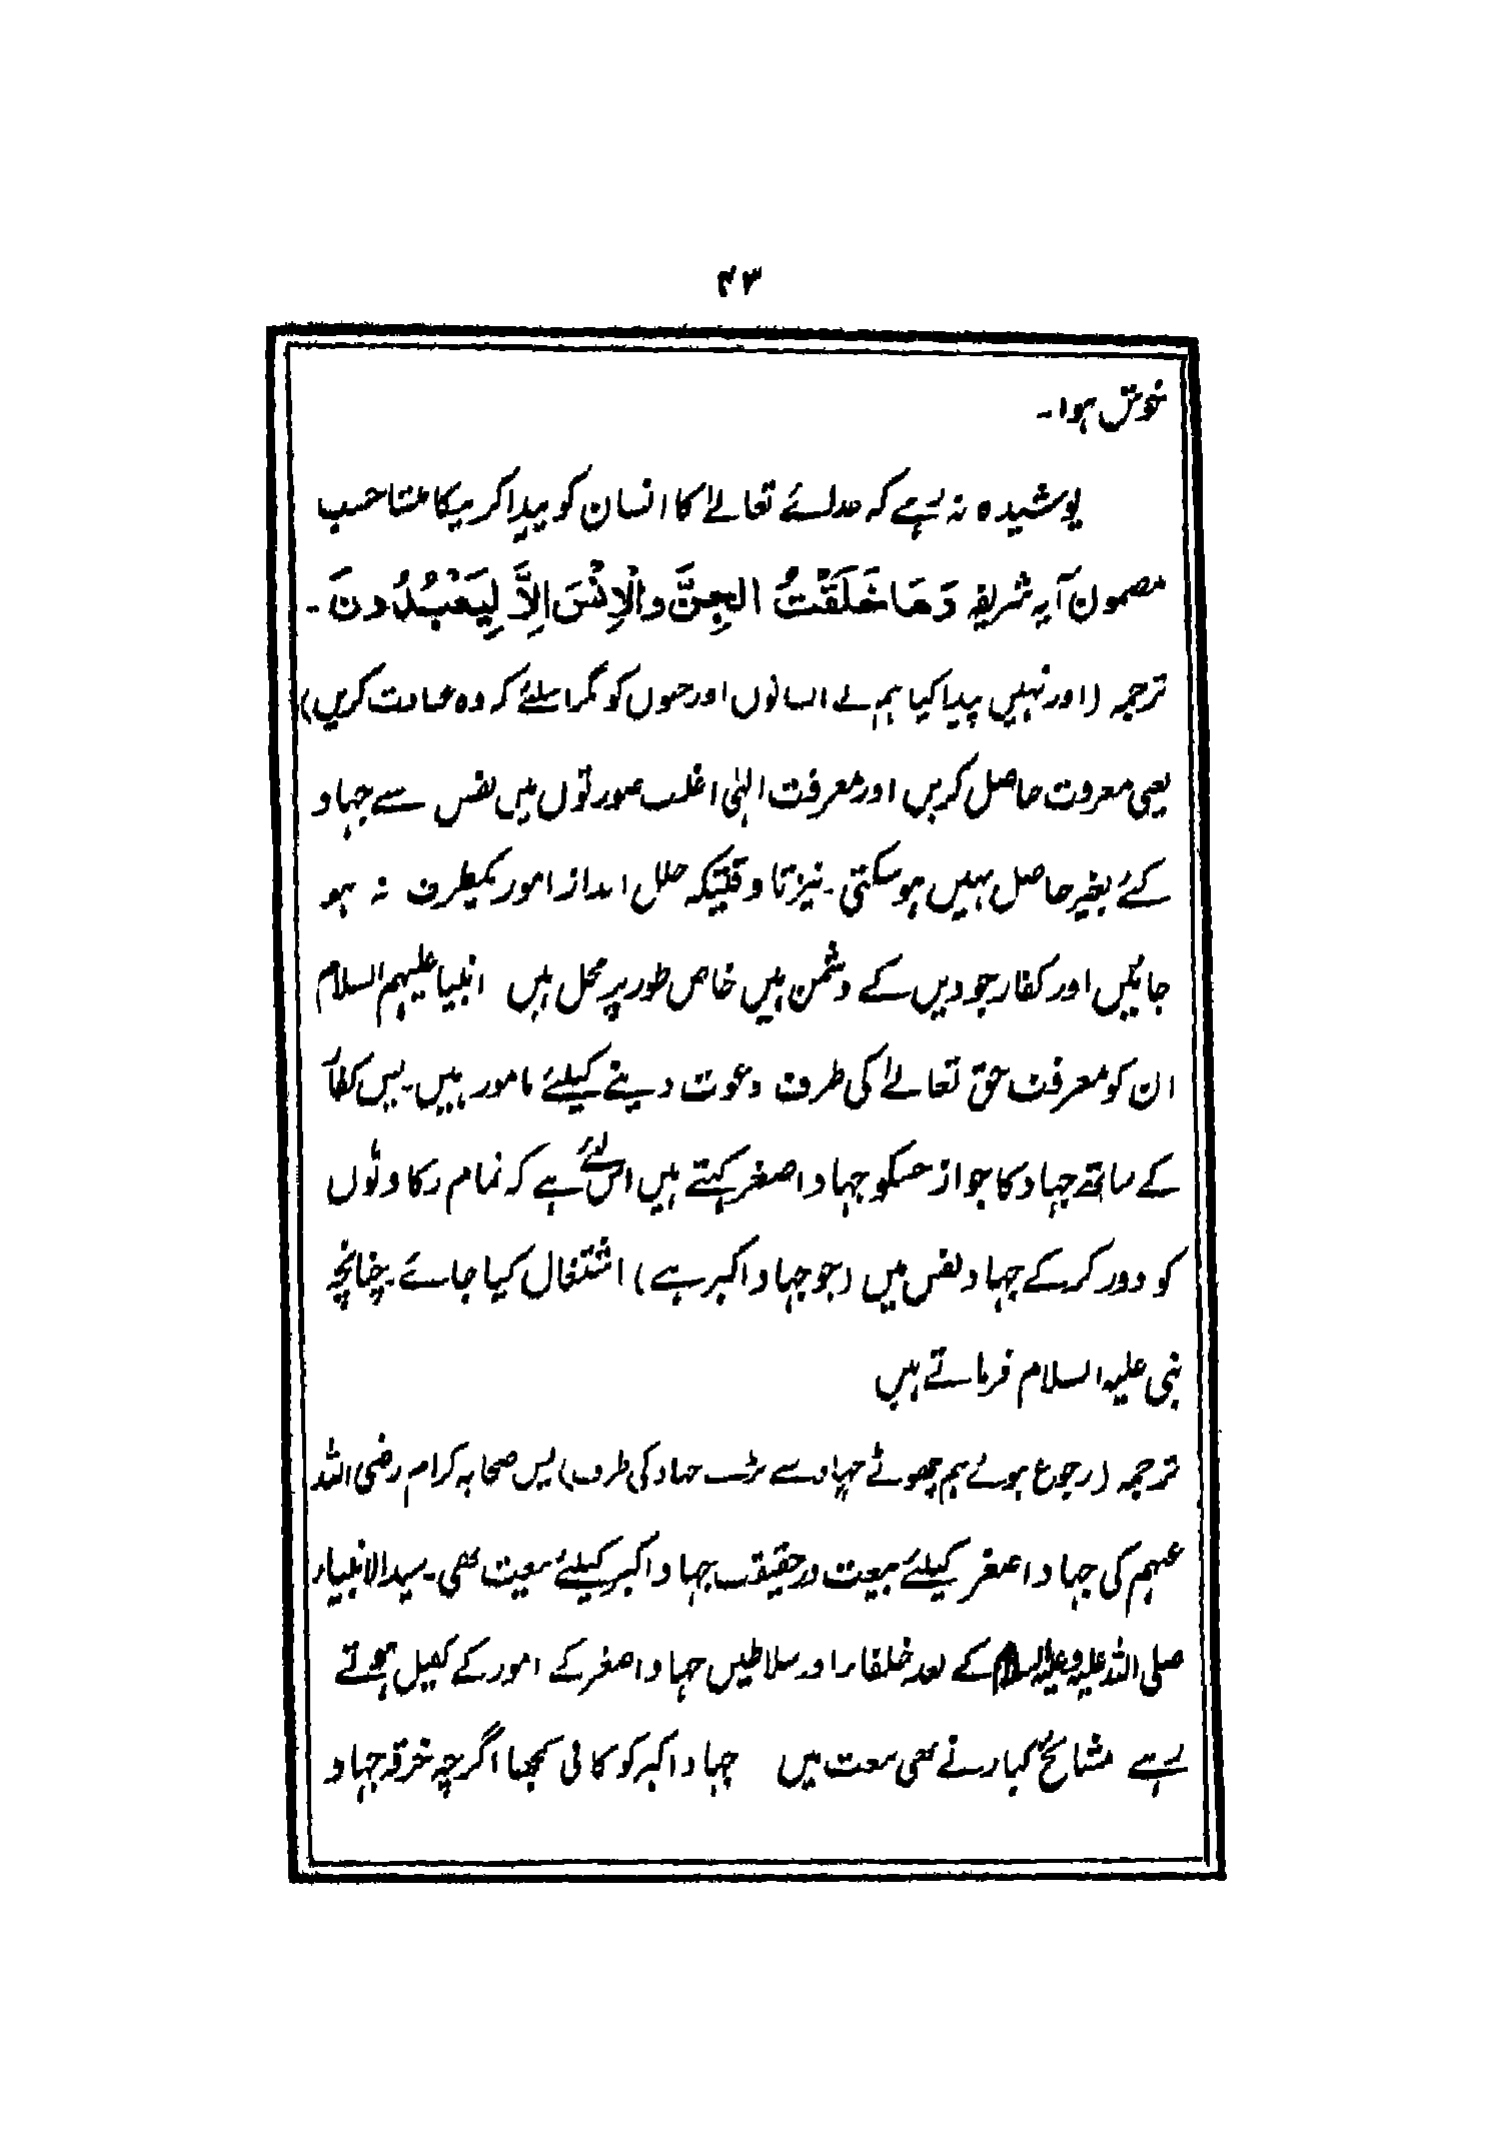 ۴۳
خوش ہوا۔
پوشیدہ نہ رہے کہ خدائے تعالےٰ کا انسان کو پیدا کرنیکا منشا حسب
مضمون آیہ شریفہ وَمَا خَلَقْتُ الجِنَّ والْاِنْسَ اِلاَّ لِیَعْبُدُونَ۔
ترجمہ (اور نہیں پیدا کیا ہم نے انسانوں اور جنوں کو مگر اسلئے کہ وہ عبادت کریں)
یعنی معرفت حاصل کریں اور معرفت الٰہی اغلب صورتوں میں نفس سے جہاد
کے بغیر حاصل نہیں ہو سکتی۔ نیز تا وقتیکہ خلل انداز امور یکطرف نہ ہو
جائیں اور کفار جو دین کے دشمن ہیں خاص طور پر مخل ہیں انبیا علیہم السلام
ان کو معرفت حق تعالےٰ کی طرف دعوت دینے کیلئے مامور ہیں۔ پس کفار
کے ساتھ جہاد کا جواز جسکو جہاد اصغر کہتے ہیں اس لئے ہے کہ تمام رکاوٹوں
کو دور کر کے جہاد نفس میں (جو جہاد اکبر ہے) اشتغال کیا جائے۔ چنانچہ
نبی علیہ السلام فرماتے ہیں
ترجمہ (رجوع ہوئے ہم چھوٹے جہاد سے بڑے جہاد کی طرف) پس صحابہ کرام رضی اللہ
عنہم کی جہاد اصغر کیلئے بیعت درحقیقت جہاد اکبر کیلئے بیعت تھی۔ سید الانبیاء
صلی اللہ علیہ وعلیہم السلام کے بعد خلفاء اور سلاطین جہاد اصغر کے امور کے کفیل ہوتے
رہے مشائخ کبار نے بھی بیعت میں جہاد اکبر کو کافی سمجھا اگرچہ خرقہ جہاد